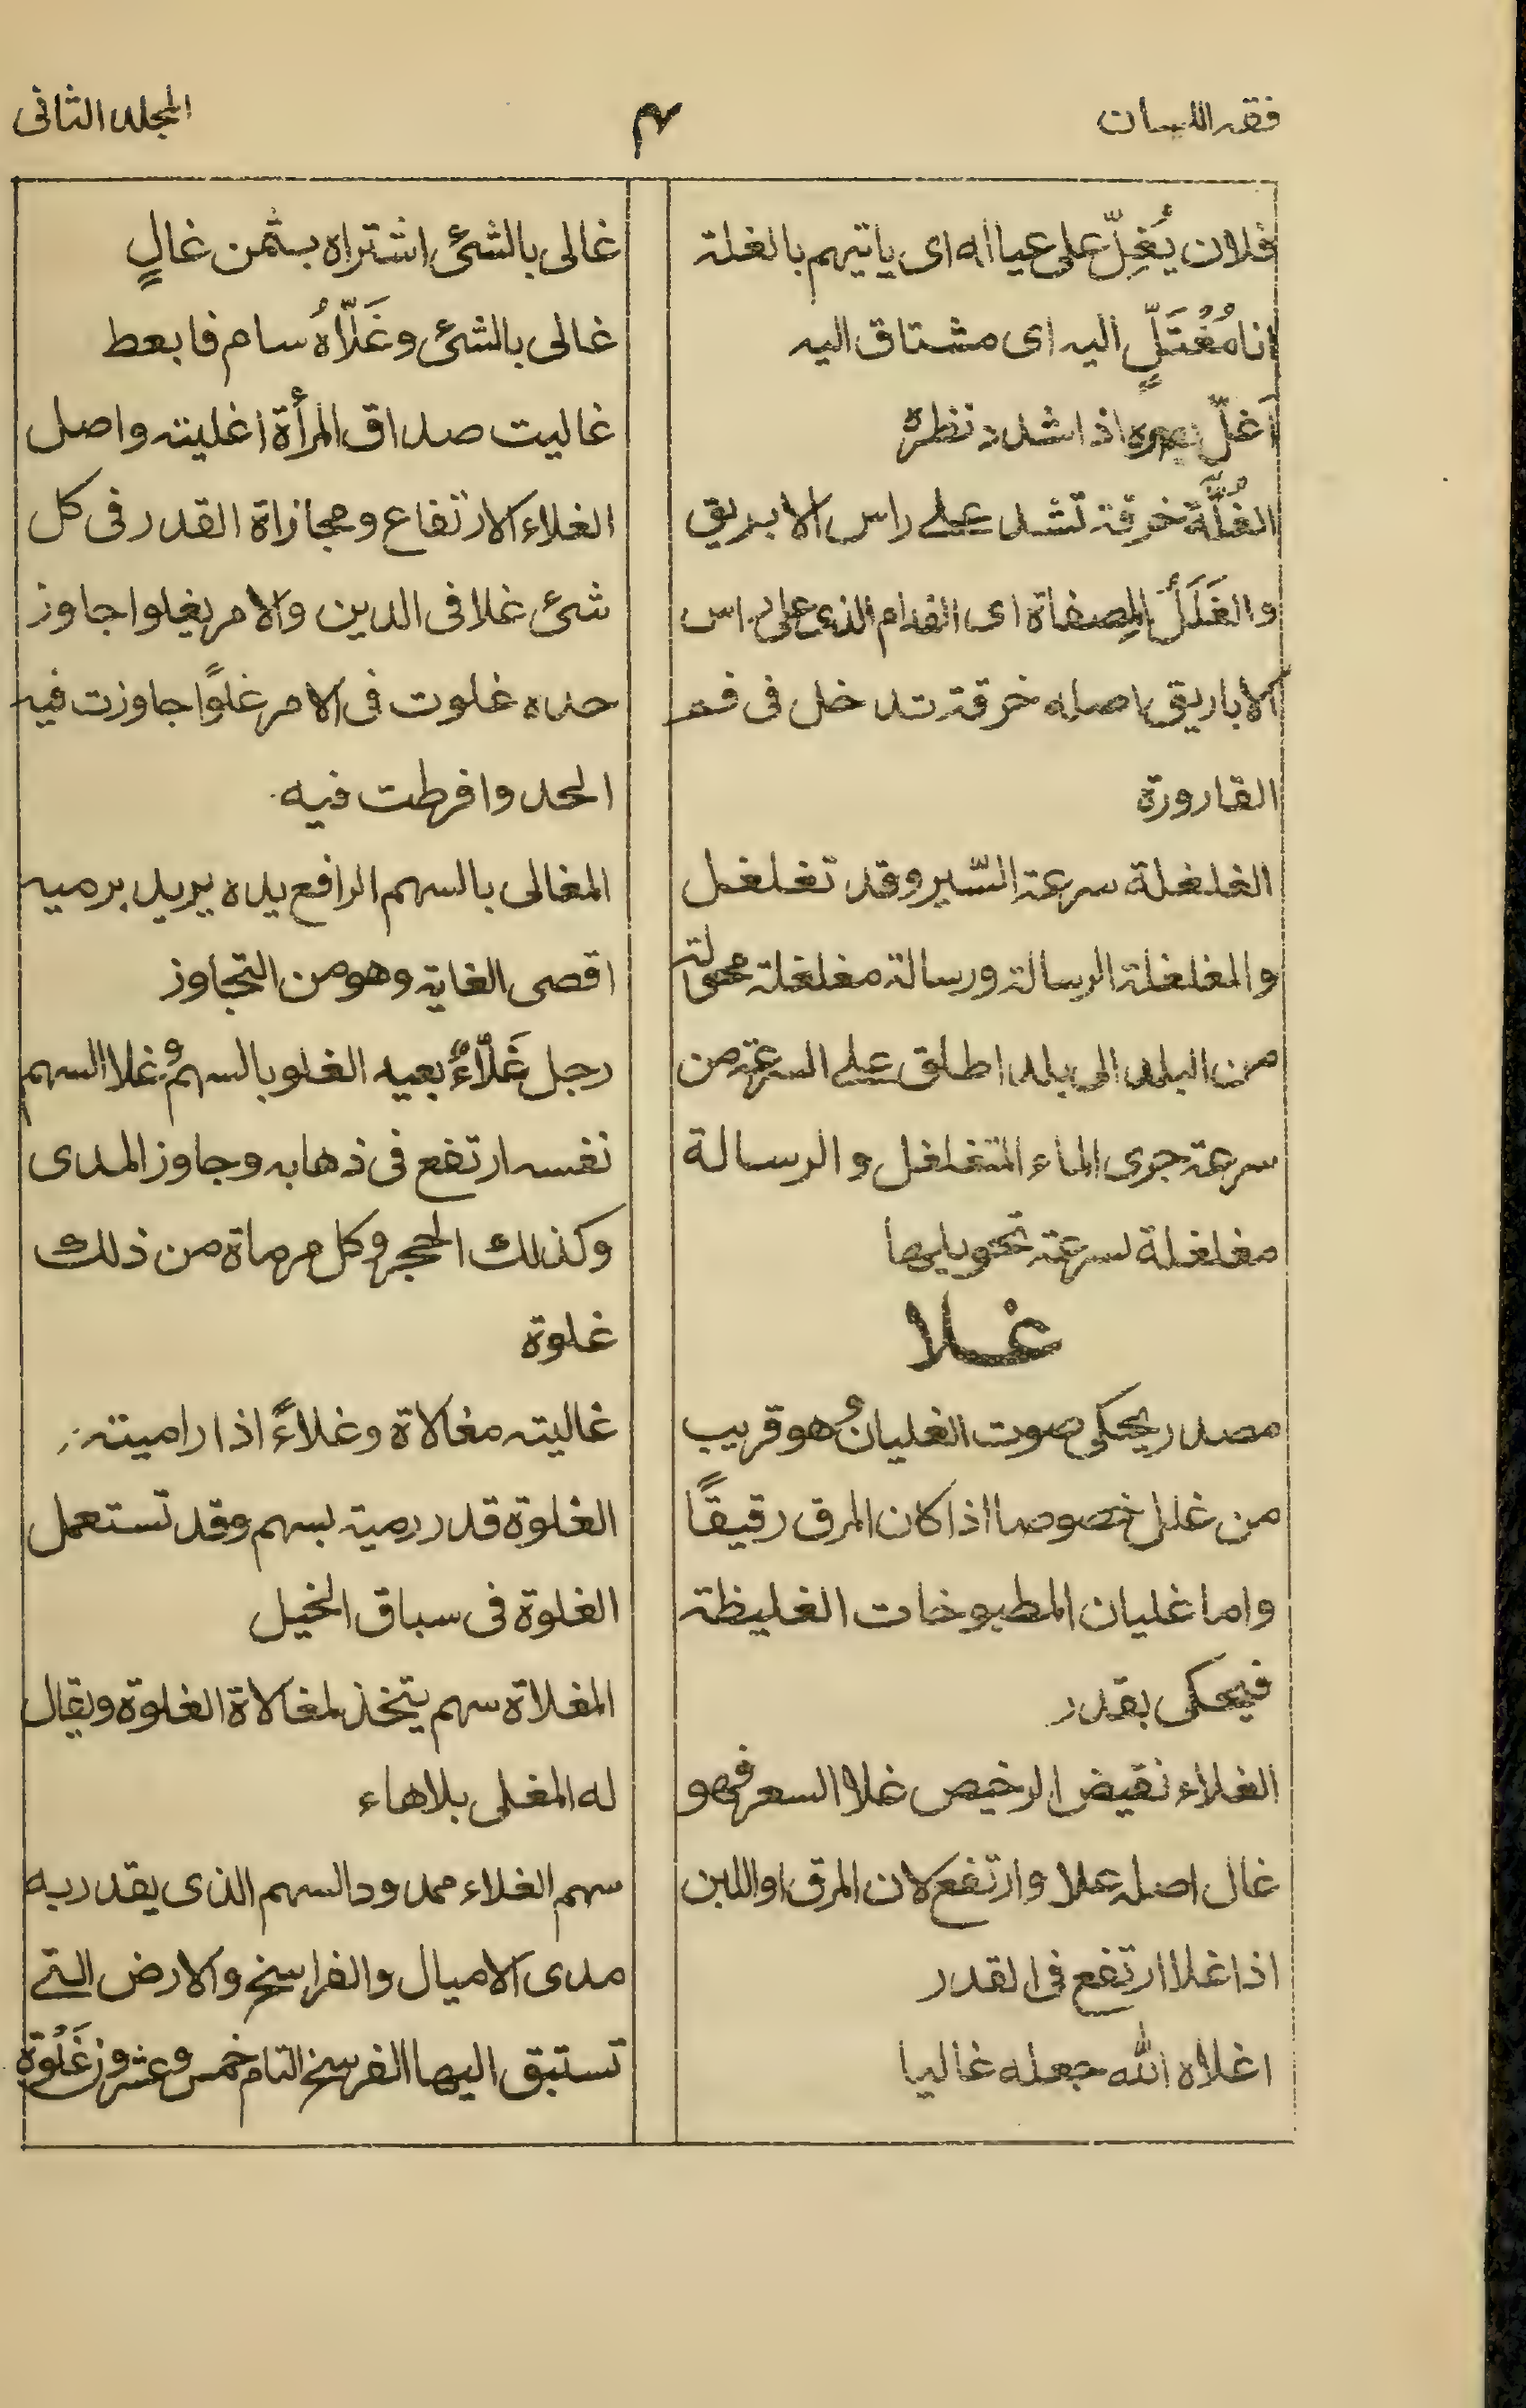 فقه اللسان
۴
المجلد الثانی
فلان یُغِلّ علی عیاله ای یاتیهم بالغلة
انا مُغْتَلٍّ الیه ای مشتاق الیه
اَغلّ بصره اذا شدد نظره
الغُلَّة خرقة تشد علی راس الابریق
والغَلَلُ المِصفاة ای الفدام الذی علی راس
الاباریق اصله خرقة تدخل فی فم
القارورة
الغلغلة سرعة السّیر وقد تغلغل
والمغلغلة الرسالة ورسالة مغلغلة محمولة
من البلد الی بلد اطلق علی السرعة من
سرعة جری الماء المتغلغل والرسالة
مغلغلة لسرعة تحویلها
غلا
مصدر یحکی صوت الغلیان وهو قریب
من غلل خصوصا اذا کان المرق رقیقًا
واما غلیان المطبوخات الغلیظة
فیحکی بقدر
الغلاء نقیض الرخیص غلا السعر فهو
غال اصله علا وارتفع لان المرق او اللبن
اذا غلا ارتفع فی القدر
اغلاه الله جعله غالیا
غالی بالشئ اشتراه بثمن غالٍ
غالی بالشئ وغَلّاهُ سام فابعط
غالیت صداق المرأة اغلیته واصل
الغلاء الارتفاع ومجازاة القدر فی کل
شئ غلا فی الدین والامر یغلوا جاوز
حده غلوت فی الامر غلوًا جاوزت فیه
الحد وافرطت فیه
المغالی بالسهم الرافع یده یرید برمیه
اقصی الغایة وهو من التجاوز
رجل غَلّاءٌ بعیه الغلو بالسهم وغلا السهم
نفسه ارتفع فی ذهابه وجاوز المدی
وکذلك الحجر وکل مرماة من ذلك
غلوة
غالیته مغالاة وغلاءً اذا رامیته
الغلوة قدر رمیة بسهم وقد تستعمل
الغلوة فی سباق الخیل
المغلاة سهم یتخذ لمغالاة الغلوة ویقال
له المغلی بلا هاء
سهم الغلاء ممدود السهم الذی یقدر به
مدی الامیال والفراسخ والارض التی
تستبق الیها الفرسخ التام خمس وعشرون غَلْوة